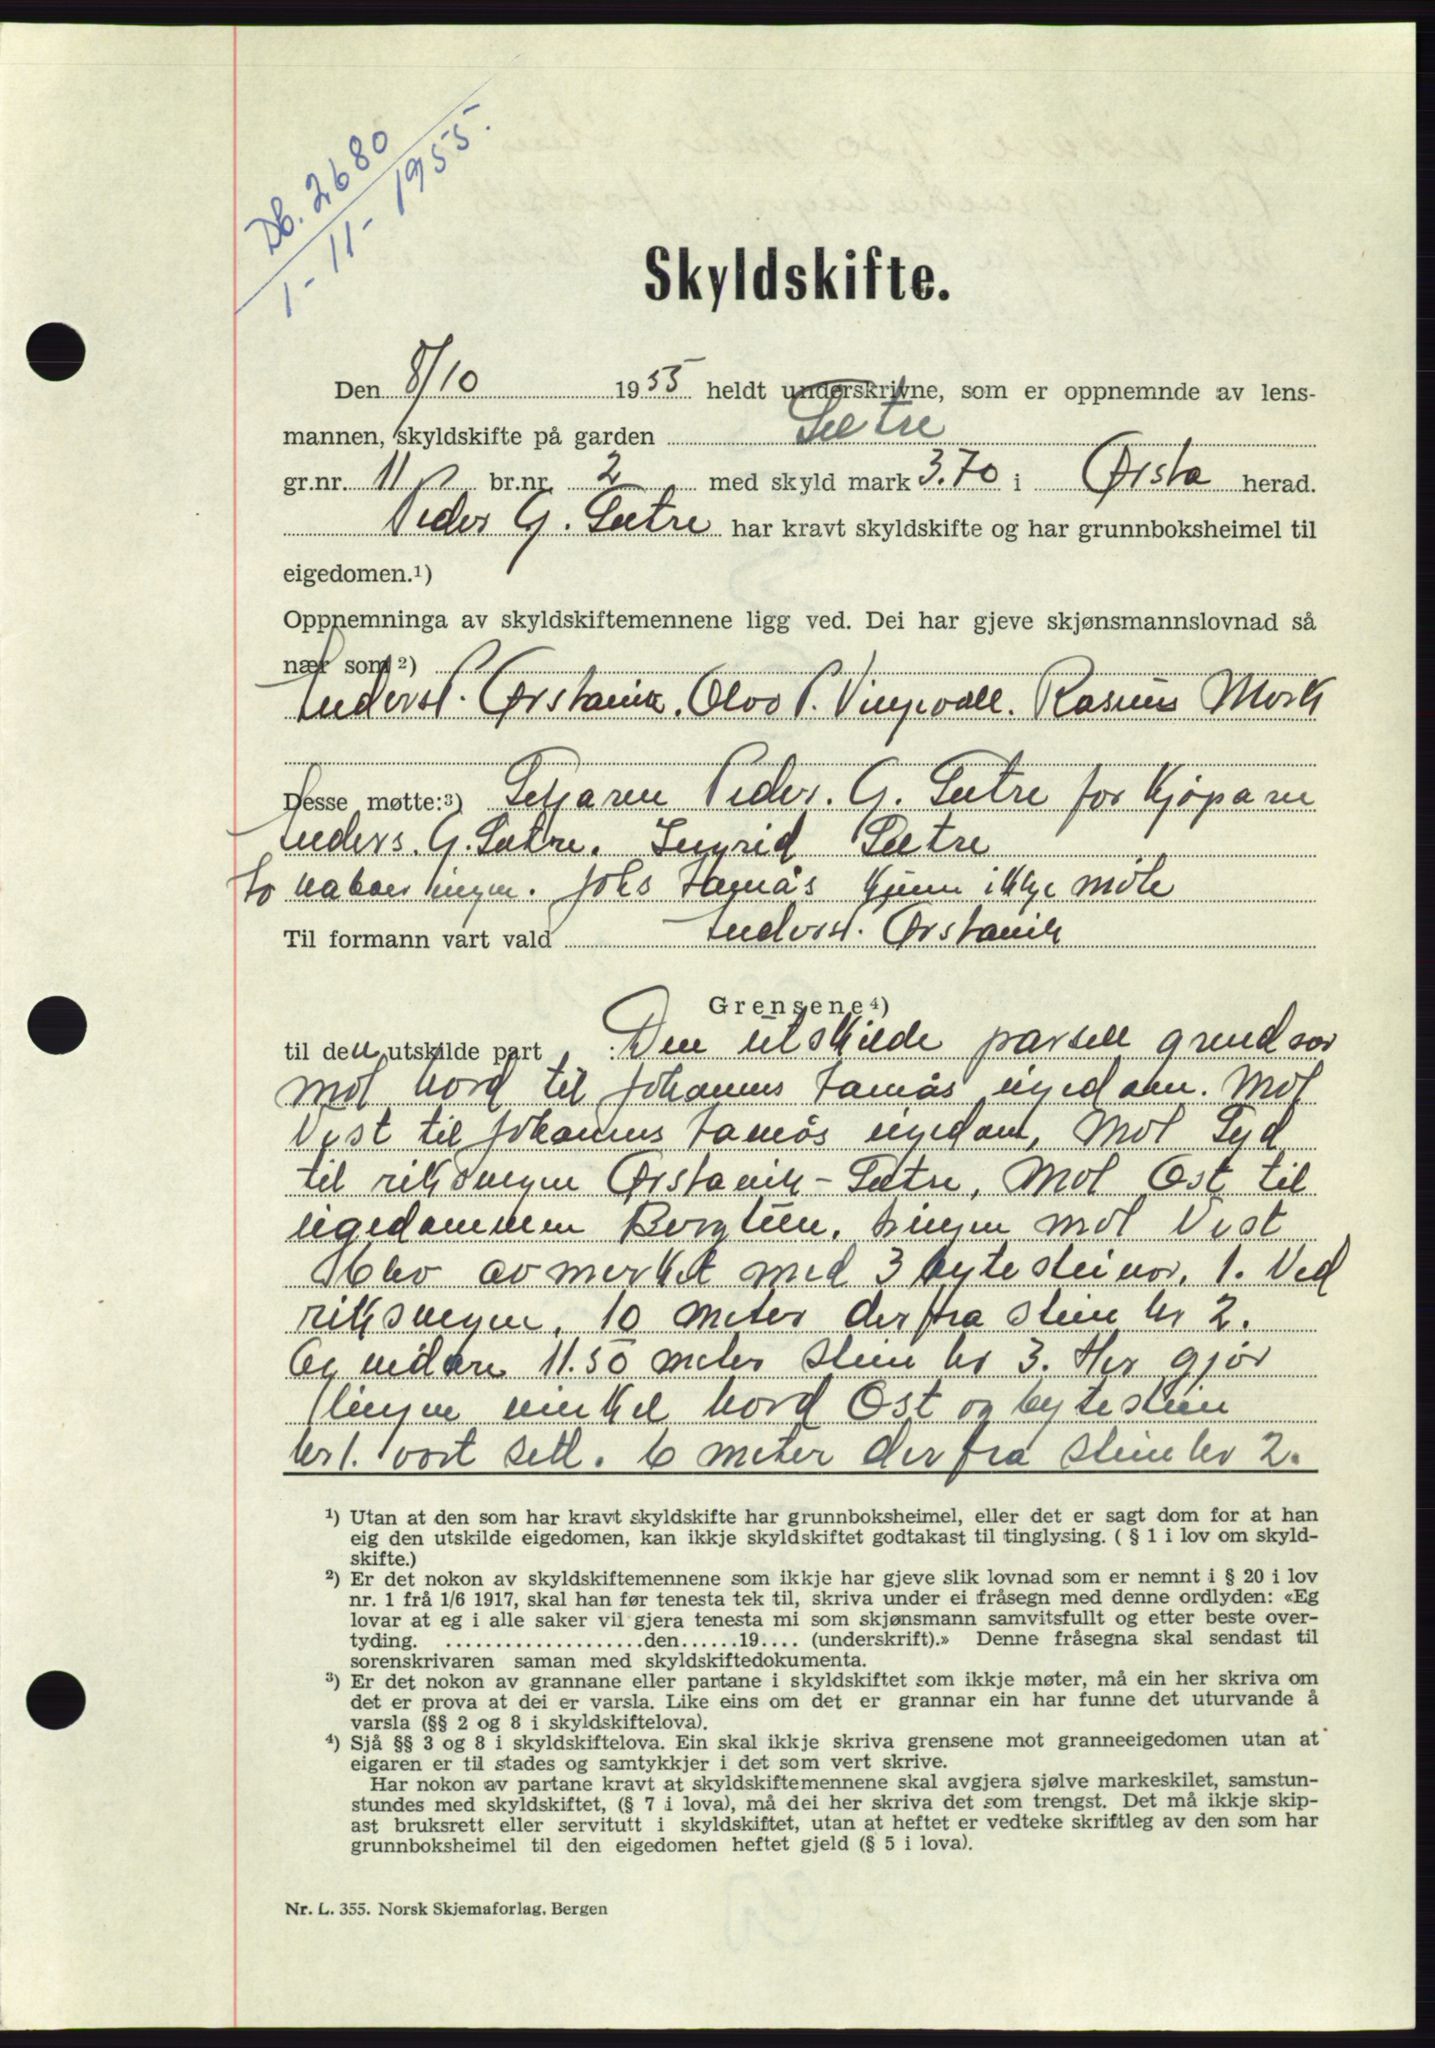 Db. 2680
1-11-1955.
Skyldskifte.
Den 8/10 1955 heldt underskrivne, som er oppnemnde av lens-
mannen, skyldskifte på garden Sætre
gr.nr. 11 br.nr. 2 med skyld mark 3.70 i Ørsta herad.
Peder G. Sætre har kravt skyldskifte og har grunnboksheimel til
eigedomen.¹)
Oppnemninga av skyldskiftemennene ligg ved. Dei har gjeve skjønsmannslovnad så
nær som ²)
Anders P. Ørstavik. Olav P. Vinjevoll. Rasmus Mork
Desse møtte: ³) Seljaren Peder. G. Sætre for Kjøparen
Anders. G. Sætre. Ingrid Sætre
Johs kjunn ikkje møte
Til formann vart vald Anders P. Ørstavik
Grensene ⁴)
til den utskilde part : Den utskilde parsell
mot nord til Johannes eigedom. Mot
Vest til Johannes eigedom, Mot Syd
til riksvegen Ørstavik - Sætre, Mot Ost til
eigedommen Linjen mot Vest
blev avmerket med 3 bytesteinar. 1. Ved
riksvegen, 10 meter derfra stein nr 2.
Og vidare 11.50 meter stein nr 3. Her gjør
linjen vinkel nord Ost og bytestein
nr 1. vart sett. 6 meter derfra stein nr 2.
¹) Utan at den som har kravt skyldskifte har grunnboksheimel, eller det er sagt dom for at han
eig den utskilde eigedomen, kan ikkje skyldskiftet godtakast til tinglysing. ( § 1 i lov om skyld-
skifte.)
²) Er det nokon av skyldskiftemennene som ikkje har gjeve slik lovnad som er nemnt i § 20 i lov
nr. 1 frå 1/6 1917, skal han før tenesta tek til, skriva under ei fråsegn med denne ordlyden: «Eg
lovar at eg i alle saker vil gjera tenesta mi som skjønsmann samvitsfullt og etter beste over-
tyding. ....................den......19.... (underskrift).» Denne fråsegna skal sendast til
sorenskrivaren saman med skyldskiftedokumenta.
³) Er det nokon av grannane eller partane i skyldskiftet som ikkje møter, må ein her skriva om
det er prova at dei er varsla. Like eins om det er grannar ein har funne det uturvande å
varsla (§§ 2 og 8 i skyldskiftelova).
⁴) Sjå §§ 3 og 8 i skyldskiftelova. Ein skal ikkje skriva grensene mot granneeigedomen utan at
eigaren er til stades og samtykkjer i det som vert skrive.
Har nokon av partane kravt at skyldskiftemennene skal avgjera sjølve markeskilet, samstun-
stundes med skyldskiftet, (§ 7 i lova), må dei her skriva det som trengst. Det må ikkje skip-
ast bruksrett eller servitutt i skyldskiftet, utan at heftet er vedteke skriftleg av den som har
grunnboksheimel til den eigedomen heftet gjeld (§ 5 i lova).
Nr. L. 355. Norsk Skjemaforlag. Bergen